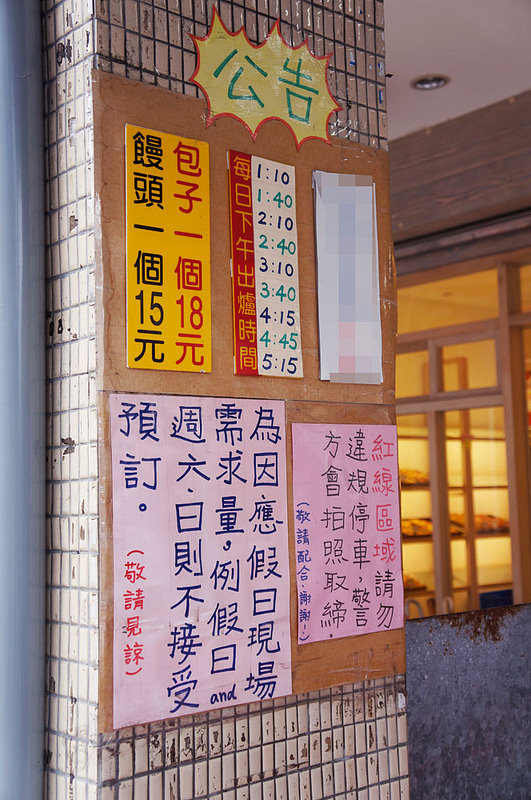 公告
包子一個18元
饅頭一個15元
每日下午出爐時間
1:10
1:40
2:10
2:40
3:10
3:40
4:15
4:45
5:15
為因應假日現場
需求量,例假日and
週六、日則不接受
預訂。
(敬請見諒)
紅線區域請勿
違規停車,警
方會拍照取締.
(敬請配合.謝謝!)